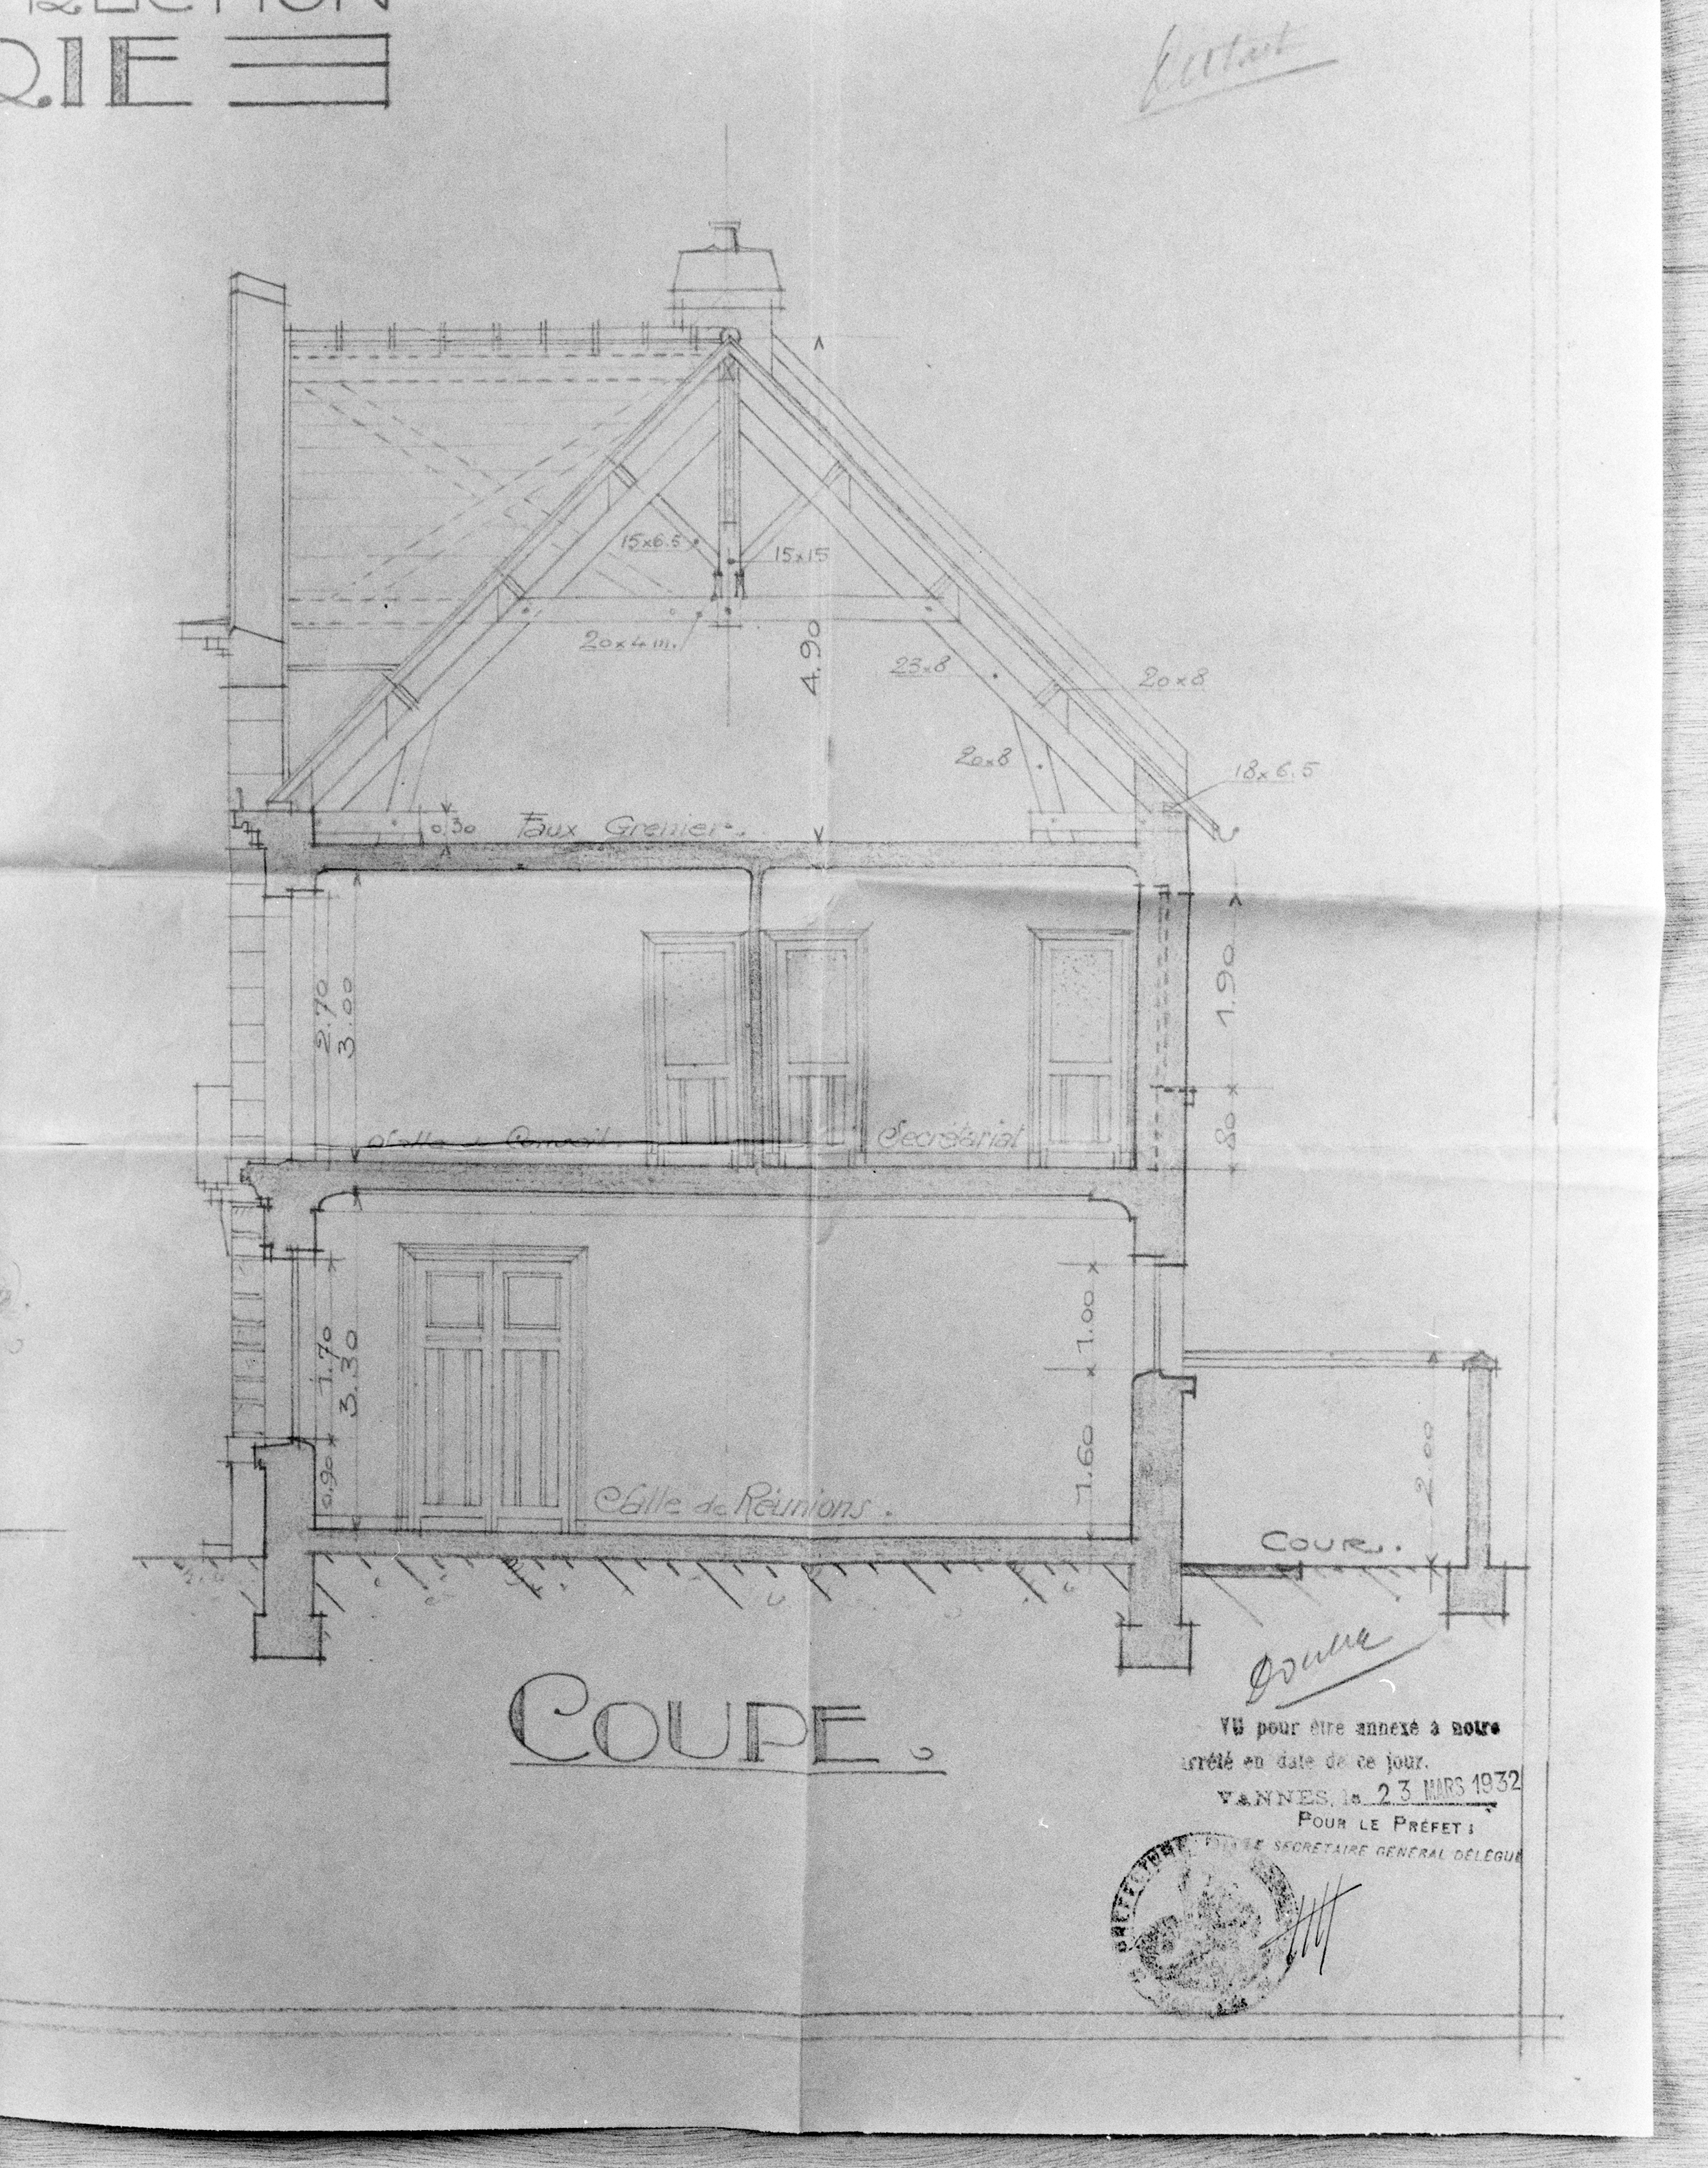 RIE
15x6.5
15x15
20x4 m.
4.90
23x8
20x8
20x8
18x6.5
0.30
Faux Grenier.
2.70
3.00
1.90
Salle de Conseil
Secrétariat
80
1.70
3.30
1.00
0.90
1.60
2.00
Salle de Réunions.
COUR.
COUPE.
Double
VU pour être annexé à notre
arrêté en date de ce jour.
VANNES, le 23 MARS 1932
POUR LE PRÉFET:
LE SECRÉTAIRE GÉNÉRAL DÉLÉGUÉ
PREFECTURE